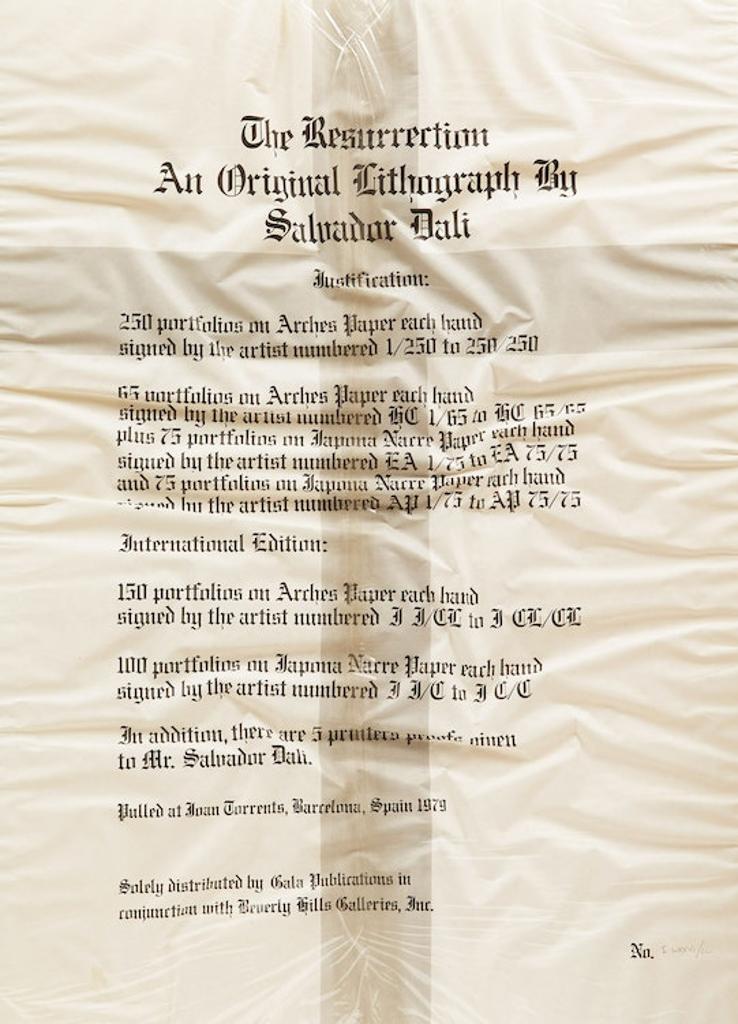 The Resurrection
An Original Lithograph By
Salvador Dali
Justification:
250 portfolios on Arches Paper each hand
signed by the artist numbered 1/250 to 250/250
65 portfolios on Arches Paper each hand
signed by the artist numbered HC 1/65 to HC 65/65
plus 75 portfolios on Japona Nacre Paper each hand
signed by the artist numbered EA 1/75 to EA 75/75
and 75 portfolios on Japona Nacre Paper each hand
signed by the artist numbered AP 1/75 to AP 75/75
International Edition:
150 portfolios on Arches Paper each hand
signed by the artist numbered I I/CL to I CL/CL
100 portfolios on Japona Nacre Paper each hand
signed by the artist numbered I I/C to I C/C
In addition, there are 5 printers proofs given
to Mr. Salvador Dali.
Pulled at Joan Torrents, Barcelona, Spain 1979
Solely distributed by Gala Publications in
conjunction with Beverly Hills Galleries, Inc.
No.